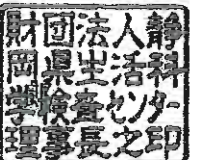 財団法人静
岡県生活科
学検査センター
理事長之印